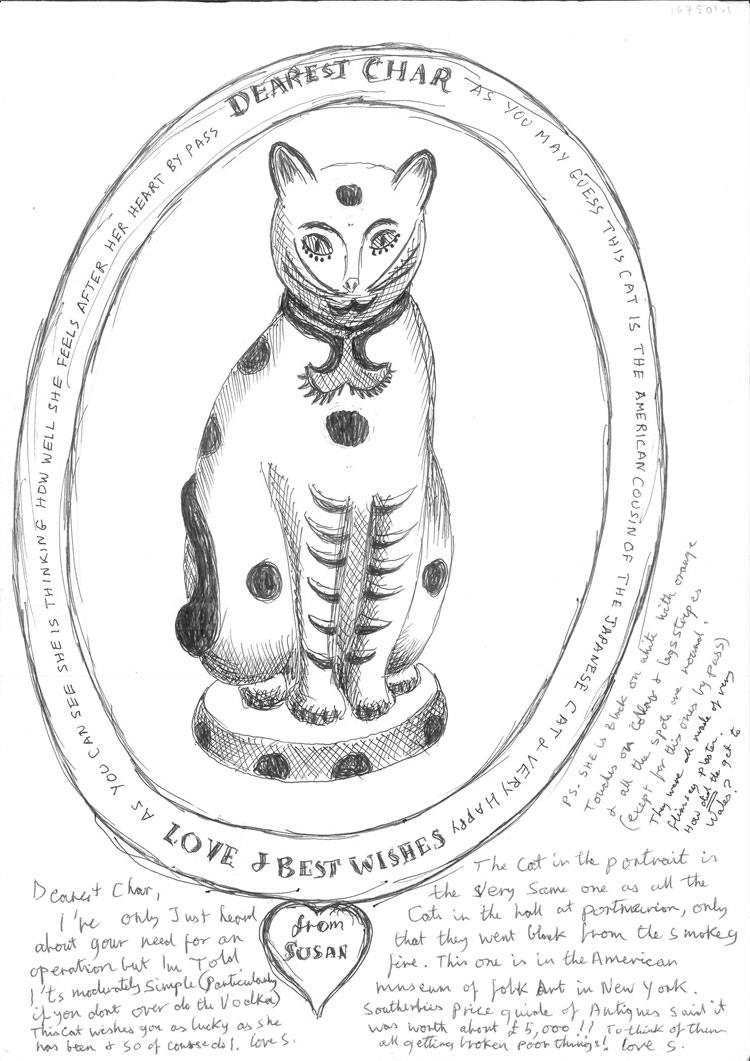 167501.1
DEAREST CHAR
AS YOU MAY GUESS THIS CAT IS THE AMERICAN COUSIN OF THE JAPANESE CAT & VERY HAPPY
LOVE & BEST WISHES
AS YOU CAN SEE SHE IS THINKING HOW WELL SHE FEELS AFTER HER HEART BY PASS
from
SUSAN
PS. SHE is black on white with orange
Touches on collar & legs stripes
& all the spots are round!
(except for this ones by pass)
They were all made of very
flimsey plaster.
How did the get to
Wales?
Dearest Char,
I've only Just heard
about your need for an
operation but I'm Told
I'ts moderately Simple (Particularly
if you dont over do the Vodka)
This Cat wishes you as lucky as she
has been & so of course do I. love S.
The Cat in the portrait is
the very same one as all the
Cats in the hall at portmeirion, only
that they went black from the smokey
fire. This one is in the American
museum of folk Art in New York.
Southerbies price guide of Antiques said it
was worth about £5,000!! To think of them
all getting broken poor things! love S.